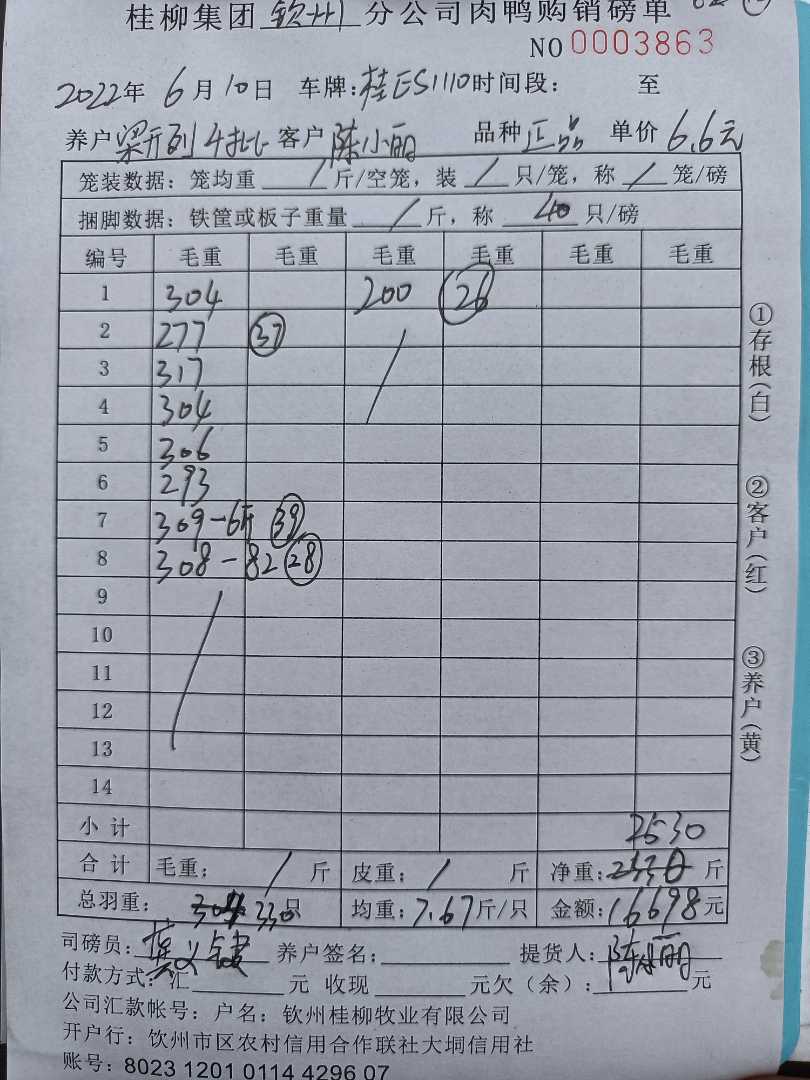 桂柳集团 钦州 分公司肉鸭购销磅单
NO 0003863
2022年 6月10日 车牌:桂ES1110 时间段: 至
养户 梁开列 4批 客户 陈小丽 品种 正品 单价 6.6元
笼装数据: 笼均重 / 斤/空笼, 装 / 只/笼, 称 / 笼/磅
捆脚数据: 铁筐或板子重量 / 斤, 称 40 只/磅
编号 毛重 毛重 毛重 毛重 毛重 毛重
1 304 200 26
2 277 37
3 317
4 304
5 306
6 293
7 309-6斤 39
8 308-82 28
9
10
11
12
13
14
小计 2530
合计 毛重: / 斤 皮重: / 斤 净重: 2530 斤
总羽重: 330 只 均重: 7.67斤/只 金额: 16698元
司磅员: 养户签名: 提货人: 陈小丽
付款方式: 汇 元 收现 元欠(余): 元
公司汇款帐号: 户名: 钦州桂柳牧业有限公司
开户行: 钦州市区农村信用合作联社大垌信用社
账号: 8023 1201 0114 4296 07
①存根(白)
②客户(红)
③养户(黄)